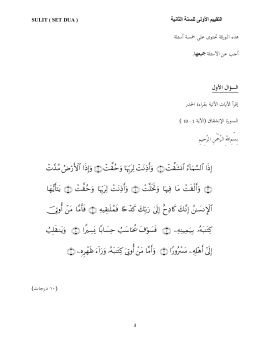 SULIT ( SET DUA )
التقييم الأولى للسنة الثانية
هذه الورقة تحتوى على خمسة أسئلة
أجب عن الأسئلة جميعها.
السؤال الأول
إقرأ الآيات الآتية بقراءة الحدر
السورة الإنشقاق (الآية 1 - 10 )
بِسْمِ اللَّهِ الرَّحْمَنِ الرَّحِيمِ
إِذَا ٱلسَّمَآءُ ٱنشَقَّتْ ۝ وَأَذِنَتْ لِرَبِّهَا وَحُقَّتْ ۝ وَإِذَا ٱلْأَرْضُ مُدَّتْ
۝ وَأَلْقَتْ مَا فِيهَا وَتَخَلَّتْ ۝ وَأَذِنَتْ لِرَبِّهَا وَحُقَّتْ ۝ يَـٰٓأَيُّهَا
ٱلْإِنسَـٰنُ إِنَّكَ كَادِحٌ إِلَىٰ رَبِّكَ كَدْحًا فَمُلَـٰقِيهِ ۝ فَأَمَّا مَنْ أُوتِىَ
كِتَـٰبَهُۥ بِيَمِينِهِۦ ۝ فَسَوْفَ يُحَاسَبُ حِسَابًا يَسِيرًا ۝ وَيَنقَلِبُ
إِلَىٰٓ أَهْلِهِۦ مَسْرُورًا ۝ وَأَمَّا مَنْ أُوتِىَ كِتَـٰبَهُۥ وَرَآءَ ظَهْرِهِۦ ۝
(١٠ درجات)